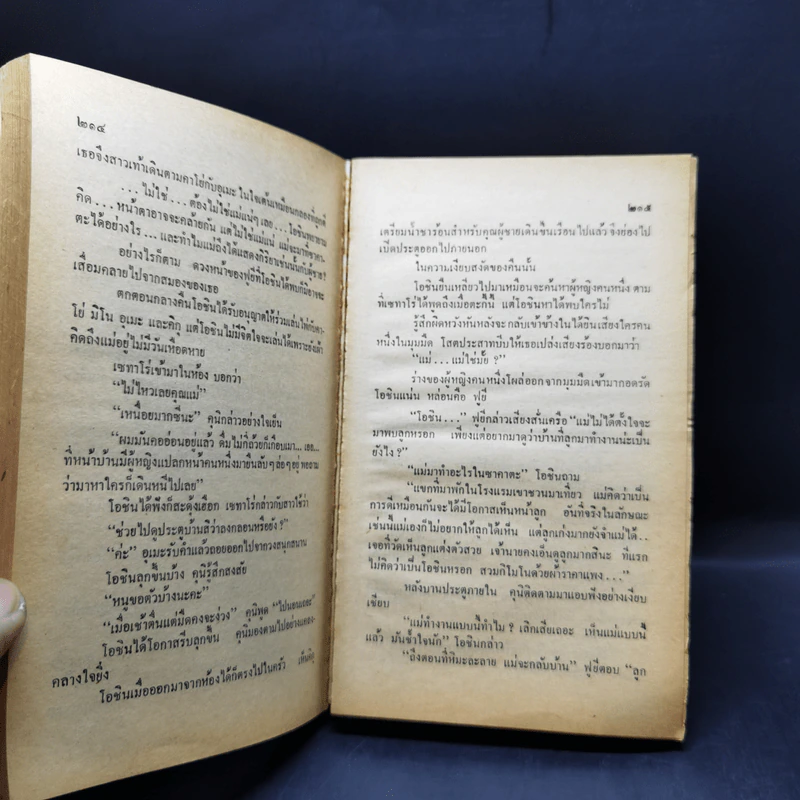 ๒๑๔
เธอจึงสาวเท้าเดินตามคาโย่กับอุเมะ ในใจเต้นเหมือนกลองที่ถูกตี
...ไม่ใช่...ต้องไม่ใช่แม่แน่ๆ เลย...โอชินพยายาม
คิด...หน้าตาอาจจะคล้ายกัน แต่ไม่ใช่แม่แน่ แม่จะมาที่ซาคา-
ตะได้อย่างไร...และทำไมแม่ถึงได้แสดงกิริยาเช่นนั้นกับผู้ชาย?
อย่างไรก็ตาม ดวงหน้าของฟูยีที่โอชินได้พบก็มิอาจจะ
เสื่อมคลายไปจากสมองของเธอ
ตกตอนกลางคืนโอชินได้รับอนุญาตให้ร่วมเล่นไพ่กับคา-
โย่ มิโน อุเมะ และคิกุ แต่โอชินไม่มีจิตใจจะเล่นได้เพราะยังเฝ้า
คิดถึงแม่อยู่ไม่มีวันเหือดหาย
เซทาโร่เข้ามาในห้อง บอกว่า
“ไม่ไหวเลยคุณแม่”
“เหนื่อยมากซีนะ” คุนิกล่าวอย่างใจเย็น
“ผมมันคออ่อนอยู่แล้ว ดื่มไม่กี่ถ้วยก็เกือบเมา...เออ...
ที่หน้าบ้านมีผู้หญิงแปลกหน้าคนหนึ่งมายืนลับๆ ล่อๆ อยู่ พอถาม
ว่ามาหาใครก็เดินหนีไปเลย”
โอชินได้ฟังก็สะดุ้งเฮือก เซทาโร่กล่าวกับสาวใช้ว่า
“ช่วยไปดูประตูบ้านสิว่าลงกลอนหรือยัง?”
“ค่ะ” อุเมะรับคำแล้วถอยออกไปจากวงสนุกสนาน
โอชินลุกขึ้นบ้าง คุนิรู้สึกสงสัย
“หนูขอตัวบ้างนะคะ”
“เมื่อเช้าตื่นแต่มืดคงจะง่วง” คุนิพูด “ไปนอนเถอะ”
โอชินได้โอกาสรีบลุกขึ้น คุนิมองตามไปอย่างแคลง-
คลางใจยิ่ง
โอชินเมื่อออกมาจากห้องได้ก็ตรงไปในครัว เห็นคิกุ
๒๑๕
เตรียมน้ำชาร้อนสำหรับคุณผู้ชายเดินขึ้นเรือนไปแล้ว จึงย่องไป
เปิดประตูออกไปภายนอก
ในความเงียบสงัดของคืนนั้น
โอชินยืนเหลียวไปมาเหมือนจะค้นหาผู้หญิงคนหนึ่ง ตาม
ที่เซทาโร่ได้พูดถึงเมื่อตะกี้นี้ แต่โอชินหาได้พบใครไม่
รู้สึกผิดหวังหันหลังจะกลับเข้าข้างในได้ยินเสียงใครคน
หนึ่งในมุมมืด โสตประสาทบีบให้เธอเปล่งเสียงร้องบอกมาว่า
“แม่...แม่ใช่มั้ย?”
ร่างของผู้หญิงคนหนึ่งโผล่ออกจากมุมมืดเข้ามากอดรัด
โอชินแน่น หล่อนคือ ฟูยี
“โอชิน...” ฟูยีกล่าวเสียงสั่นเครือ “แม่ไม่ได้ตั้งใจจะ
มาพบลูกหรอก เพียงแต่อยากมาดูว่าบ้านที่ลูกมาทำงานน่ะเป็น
ยังไง?”
“แม่มาทำอะไรในซาคาตะ” โอชินถาม
“แขกที่มาพักในโรงแรมเขาชวนมาเที่ยว แม่คิดว่าเป็น
การดีเหมือนกันจะได้มีโอกาสเห็นหน้าลูก อันที่จริงในลักษณะ
เช่นนี้แม่เองก็ไม่อยากให้ลูกได้เห็น แต่ลูกเก่งมากยังจำแม่ได้...
เจอที่วัดเห็นลูกแต่งตัวสวย เจ้านายคงเอ็นดูลูกมากสินะ ที่แรก
ไม่คิดว่าเป็นโอชินหรอก สวมกิโมโนด้วยผ้าราคาแพง...”
หลังบานประตูภายใน คุนิติดตามมาแอบฟังอย่างเงียบ
เชียบ
“แม่ทำงานแบบนี้ทำไม? เลิกเสียเถอะ เห็นแม่แบบนี้
แล้ว มันช้ำใจนัก” โอชินกล่าว
“ถึงตอนที่หิมะละลาย แม่จะกลับบ้าน” ฟูยีตอบ “ลูก